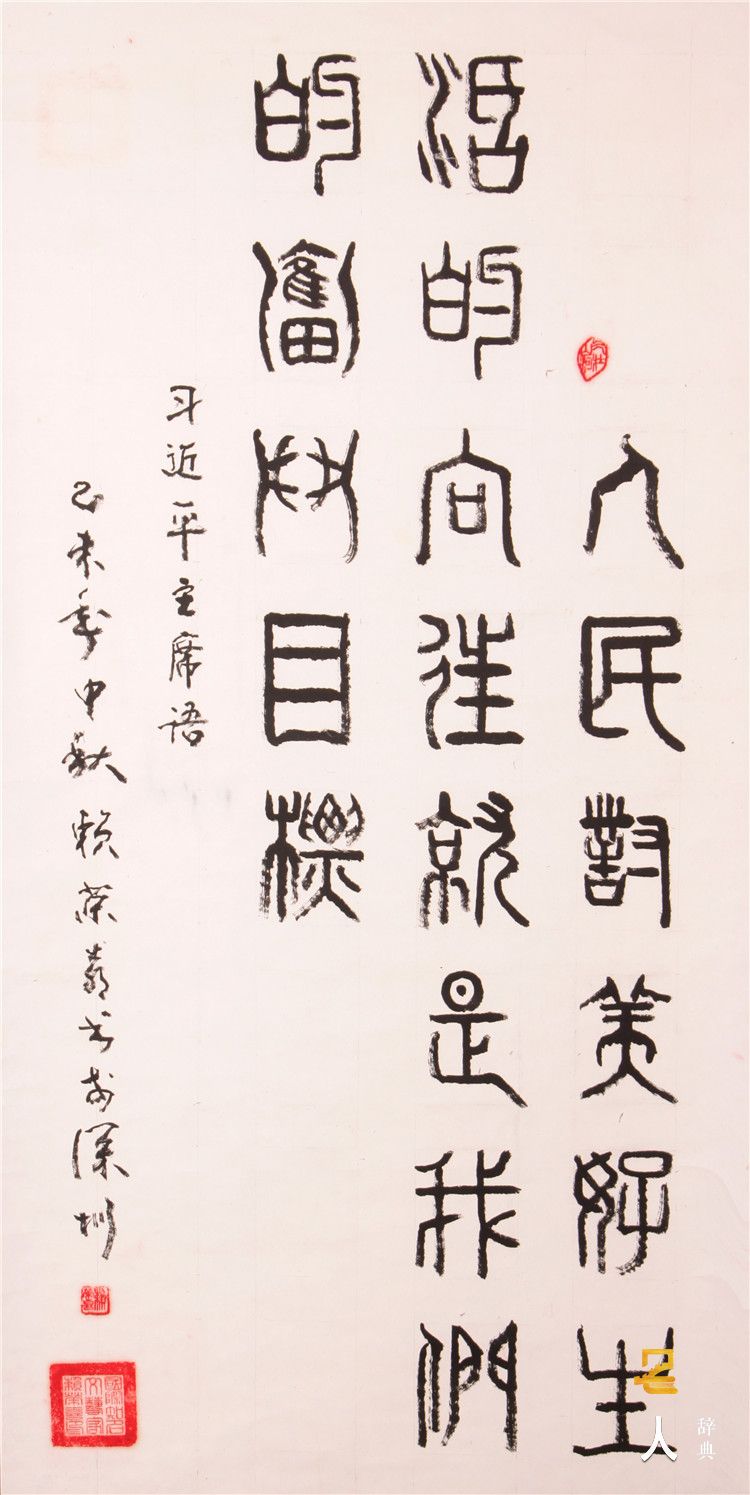 人民對美好生
活的向往就是我們
的奮鬥目標
习近平主席语
未年中秋赖荣书於深圳
名人
辞典